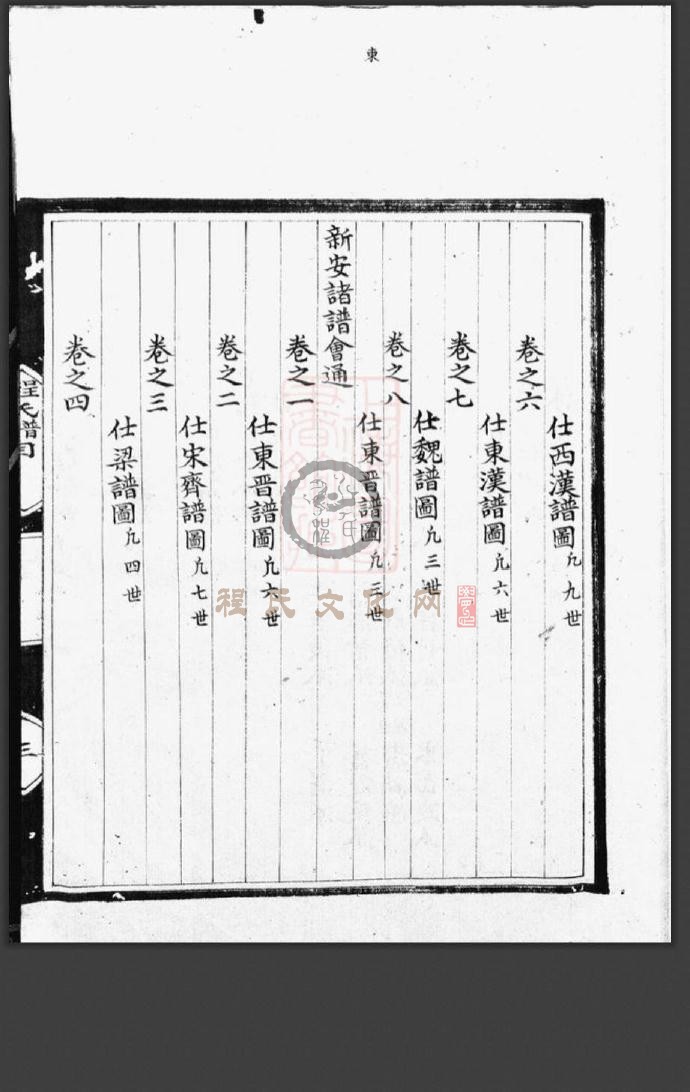 東
仕西漢譜圖凢九世
卷之六
仕東漢譜圖凢六世
卷之七
仕魏譜圖凢三世
卷之八
仕東晋譜圖凢三世
新安諸譜會通
卷之一
仕東晋譜圖凢六世
卷之二
仕宋齊譜圖凢七世
卷之三
仕梁譜圖凢四世
卷之四
程氏譜目
三
程氏文化网